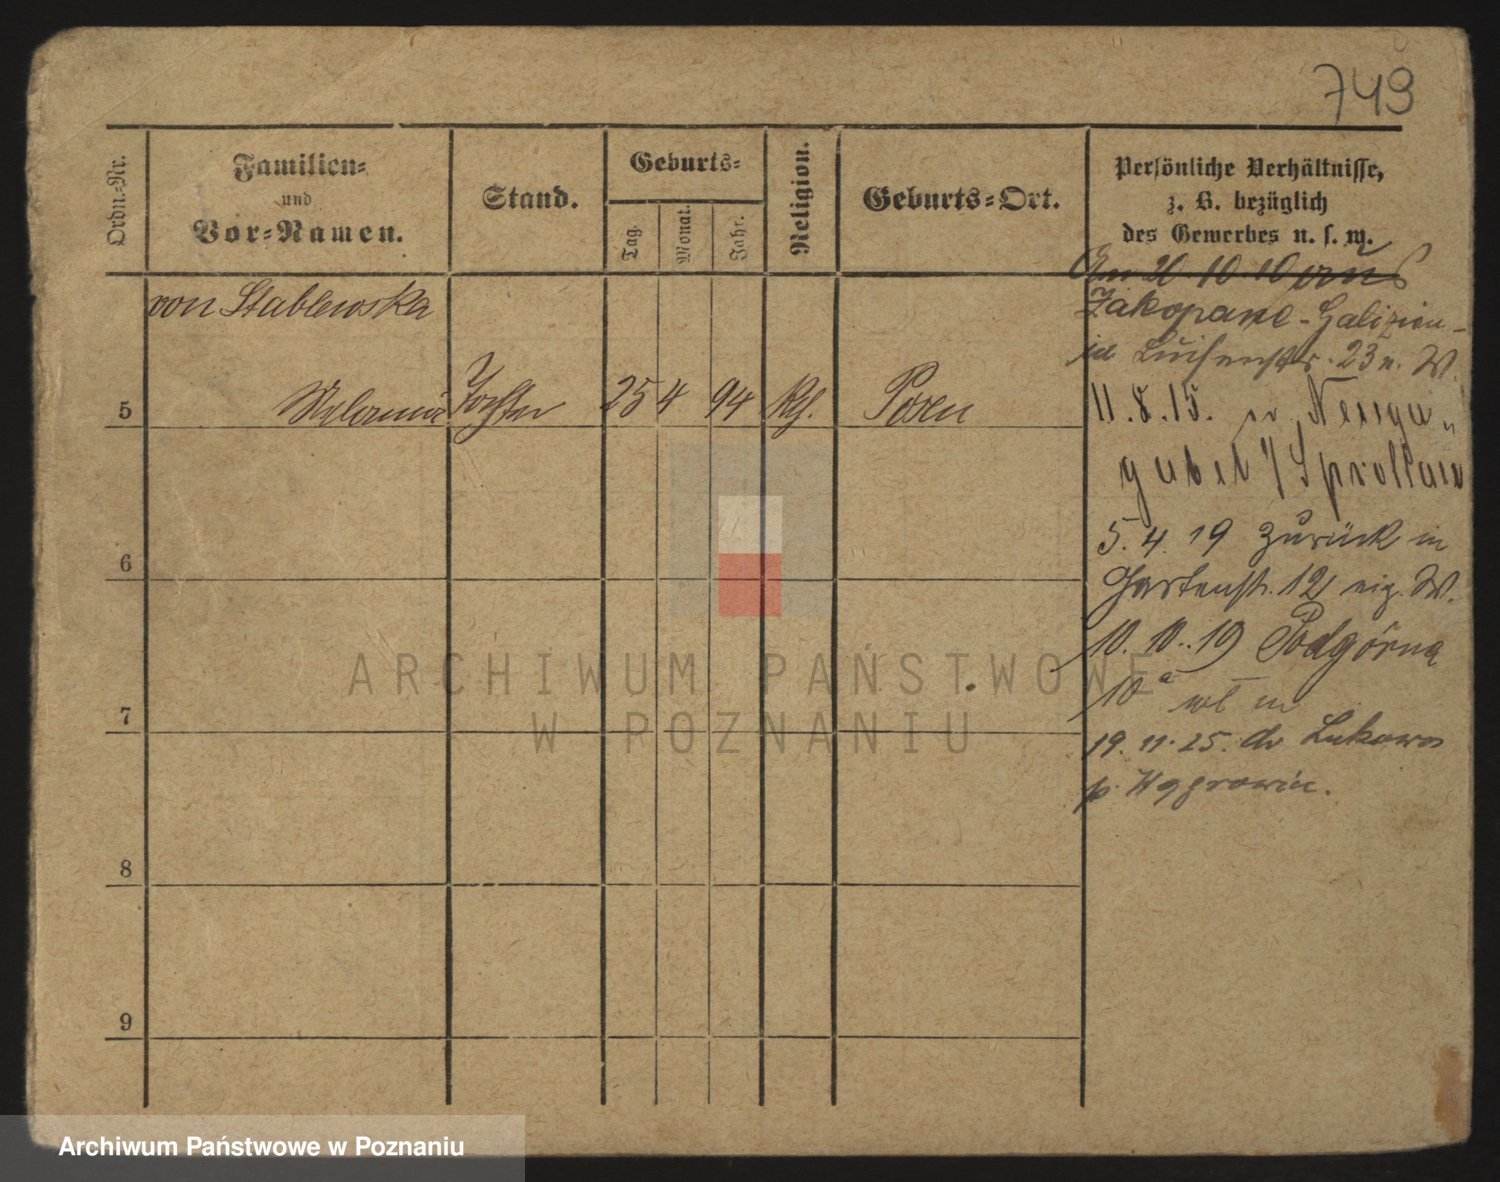 749
Ordn.-Nr.
Familien-
und
Vor-Namen.
Stand.
Geburts-
Tag.
Monat.
Jahr.
Religion.
Geburts-Ort.
Persönliche Verhältnisse,
z. B. bezüglich
des Gewerbes u. s. w.
20 10 10
von Stablewska
Zakopane - Galizien -
in Luisenstr. 23 n. W.
5 Melania Tochter 25 4 94 Kth. Posen
11.8.15.
5. 4. 19 zurück in
6
Gartenstr. 12 eig. W.
10. 10. 19 Podgórna
10 a wł m
7
19. 11. 25. do Łukowo
p.
8
9
ARCHIWUM PAŃSTWOWE
W POZNANIU
Archiwum Państwowe w Poznaniu